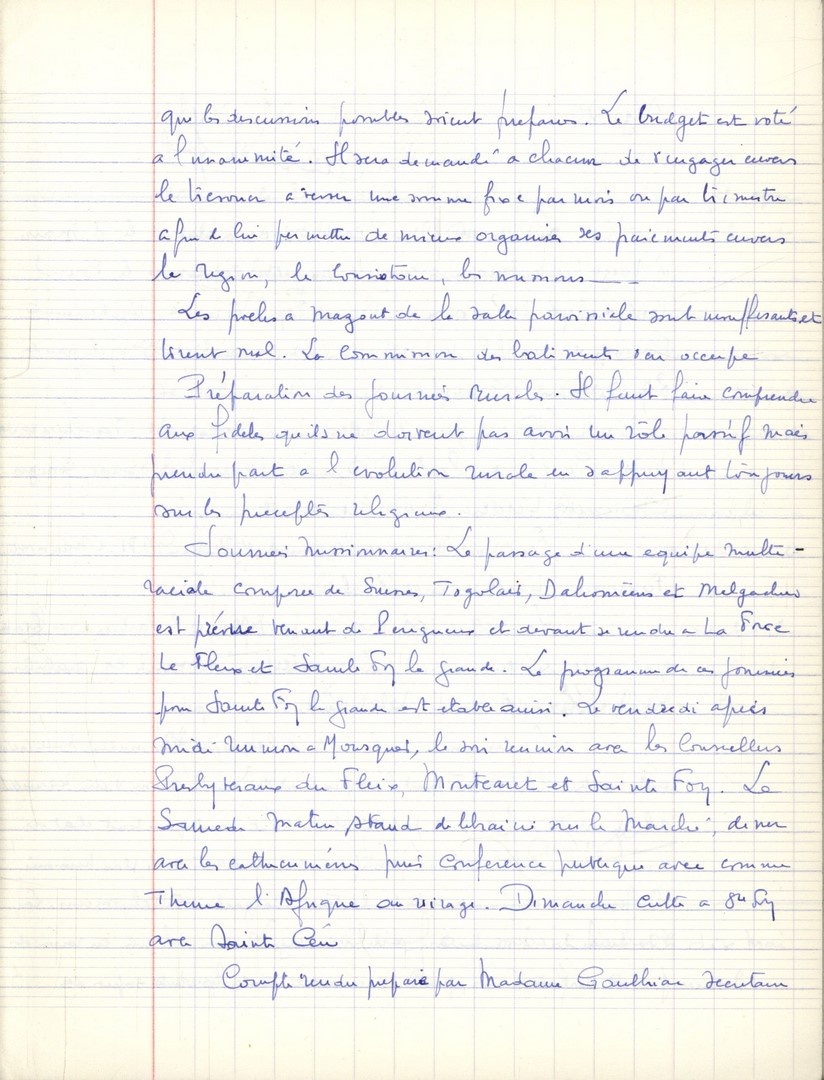 que les discussions possibles soient préparées. Le budget est voté
a l'unanimité. Il sera demandé a chacun de s'engager envers
le trésorier a verser une somme fixe par mois ou par trimestre
afin de lui permettre de mieux organiser ses paiements envers
la Région, le Consistoire, les missions
Les poeles a mazout de la salle paroissiale sont insuffisants et
tirent mal. La Commission des batiments s'en occupe
Préparation des journées Rurales. Il faut faire comprendre
aux fidèles qu'ils ne doivent pas avoir un rôle passif mais
prendre part a l'evolution rurale en s'appuyant toujours
sur les preceptes religieux.
Journées Missionnaires: Le passage d'une equipe multi-
raciale composee de Suisses, Togolais, Dahoméens et Malgaches
est prévue venant de Perigueux et devant se rendre a La Force
Le Fleix et Sainte Foy la grande. Le programme de ces journées
pour Sainte Foy la grande est etabli ainsi. Le vendredi après
midi reunion a Monsquai, le soir reunion avec les Conseillers
Presbyteraux du Fleix, Montcaret et Sainte Foy. Le
Samedi matin stand de librairie sur le Marché, diner
avec les cathecumènes puis Conférence publique avec comme
Theme l'Afrique au virage. Dimanche culte a Ste Foy
avec Sainte Cène
Compte rendu préparé par Madame Gauthier secretaire